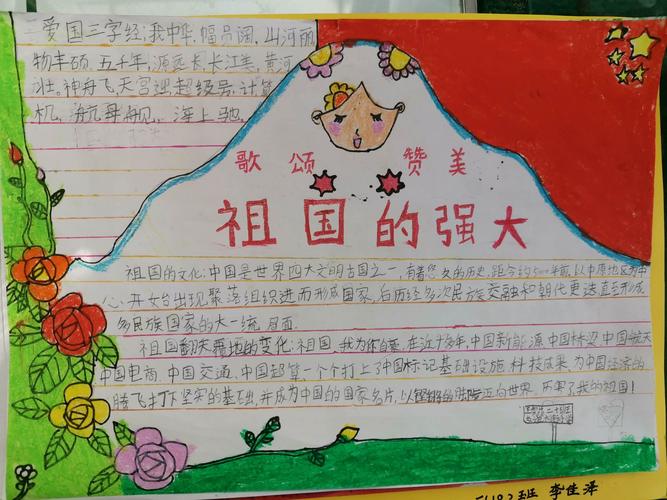 爱国三字经:我中华,幅员阔,山河丽
物丰硕,五千年,源远长,长江美,黄河
壮。神舟飞天宫
超级号,计算
机,航母舰,海上驰,
歌颂 赞美
祖国的强大
祖国的文化:中国是世界四大文明古国之一,有着悠久的历史,距今约5000年前,以中原地区为中
心,开始出现聚落组织进而形成国家,后历经多次民族交融和朝代更迭直至形成
多民族国家的大一统局面.
祖国翻天覆地的变化:祖国,我为你自豪,在近
年,中国新能源中国桥梁中国航天
中国电商.中国交通,中国超算一个个打上了中国标记基础设施科技成果,为中国经济的
腾飞打下坚实的基础,并成为中国的国家名片,以铿锵的
迈向世界.厉害了我的祖国!
班 李佳泽